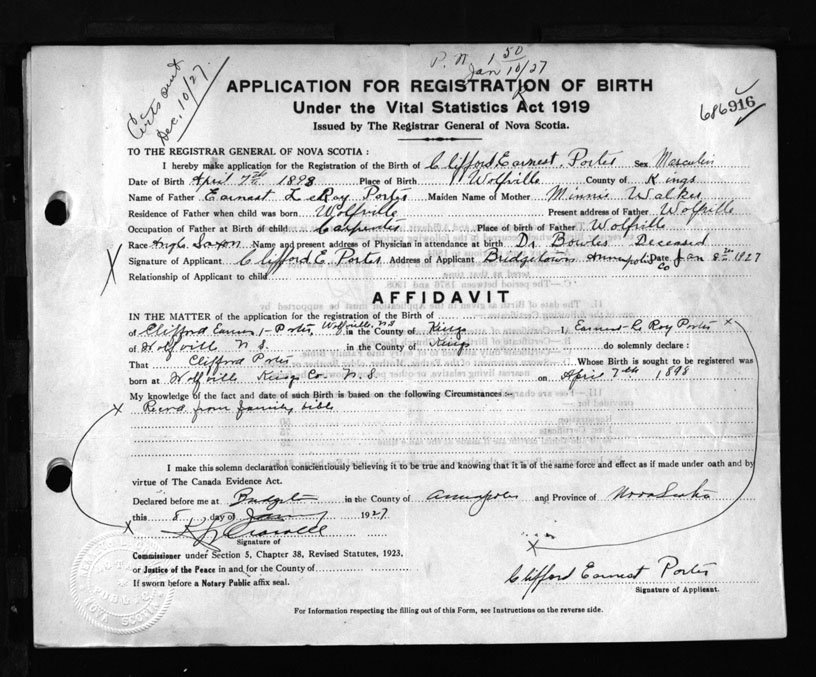 P.N. 1 50
Jan 10/27
Certs out
Dec. 10/27.
APPLICATION FOR REGISTRATION OF BIRTH
Under the Vital Statistics Act 1919
686916
Issued by The Registrar General of Nova Scotia.
TO THE REGISTRAR GENERAL OF NOVA SCOTIA :
I hereby make application for the Registration of the Birth of Clifford Earnest Porter Sex Masculin
Date of Birth April 7th 1898 Place of Birth Wolfville County of Kings
Name of Father Earnest LeRoy Porter Maiden Name of Mother Minnie Walker
Residence of Father when child was born Wolfville Present address of Father Wolfville
Occupation of Father at Birth of child Carpenter Place of birth of Father Wolfville
Race Anglo Saxon Name and present address of Physician in attendance at birth Dr Bowles Deceased
Signature of Applicant Clifford E. Porter Address of Applicant Bridgetown Annapolis Co Date Jan 8th 1927
Relationship of Applicant to child
AFFIDAVIT
IN THE MATTER of the application for the registration of the Birth of
of Clifford Earnest Porter, Wolfville, N.S. in the County of Kings I, Earnest LeRoy Porter x
of Wolfville N.S. in the County of Kings do solemnly declare :
That Clifford Porter Whose Birth is sought to be registered was
born at Wolfville Kings Co. N.S. on April 7th 1898
My knowledge of the fact and date of such Birth is based on the following Circumstances :-
x Record from family bible
I make this solemn declaration conscientiously believing it to be true and knowing that it is of the same force and effect as if made under oath and by
virtue of The Canada Evidence Act.
Declared before me at in the County of Annapolis and Province of Nova Scotia
this 8 day of Jany 1927
x
Signature of
Commissioner under Section 5, Chapter 38, Revised Statutes, 1923.
or Justice of the Peace in and for the County of
If sworn before a Notary Public affix seal.
x
Clifford Earnest Porter
Signature of Applicant.
For Information respecting the filling out of this Form, see Instructions on the reverse side.